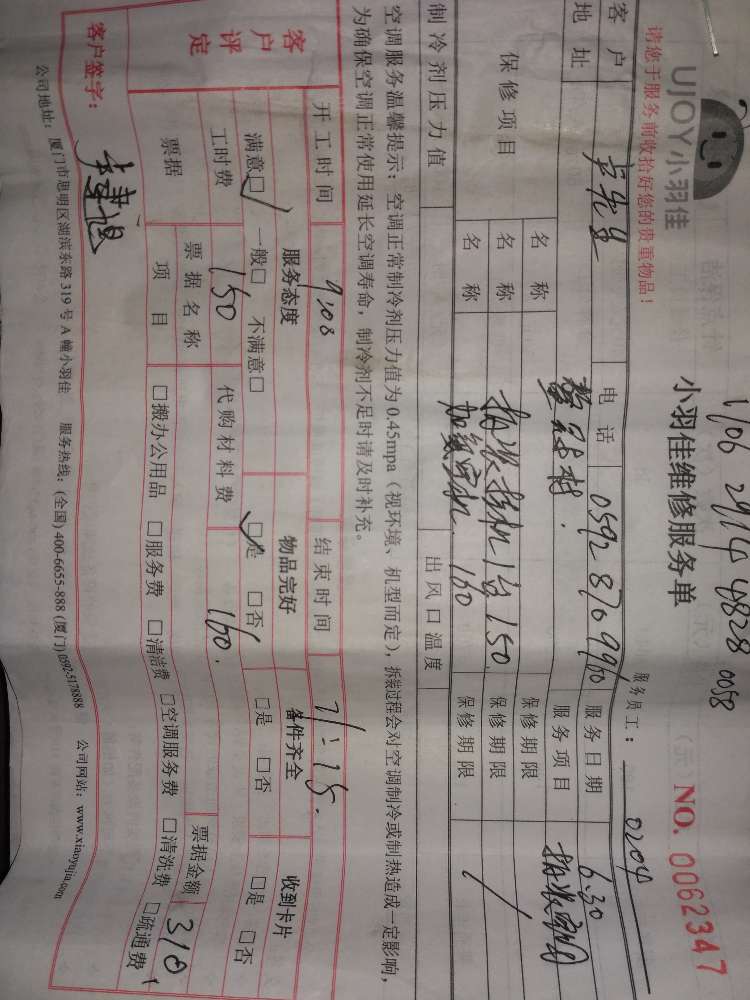 请您于服务前收拾好您的贵重物品!
UJOY小羽佳
1/06 2914 4828 0058
小羽佳维修服务单
服务员工: 0204
NO. 0062347
客户 卢先生 电话 0592 8709960 服务日期 6.30
地址 服务项目
保修项目 名称 保修期限
名称 1台 150 保修期限
名称 160 保修期限
制冷剂压力值 出风口温度
空调服务温馨提示: 空调正常制冷剂压力值为0.45mpa (视环境、机型而定), 拆装过程会对空调制冷或制热造成一定影响,
为确保空调正常使用延长空调寿命, 制冷剂不足时请及时补充。
开工时间 9:08 结束时间 11:15.
客户评定 服务态度 物品完好 备件齐全 收到卡片
满意□ 一般□ 不满意□ □是 □否 □是 □否 □是 □否
工时费 150 代购材料费 160.
票据 票据名称 票据金额 310
项目 □搬办公用品 □服务费 □清洁费 □空调服务费 □清洗费 □疏通费
客户签字:
公司地址: 厦门市思明区湖滨东路319号A幢小羽佳 服务热线: (全国) 400-6655-888 (厦门) 0592-5178888 公司网站: www.xiaoyujia.com